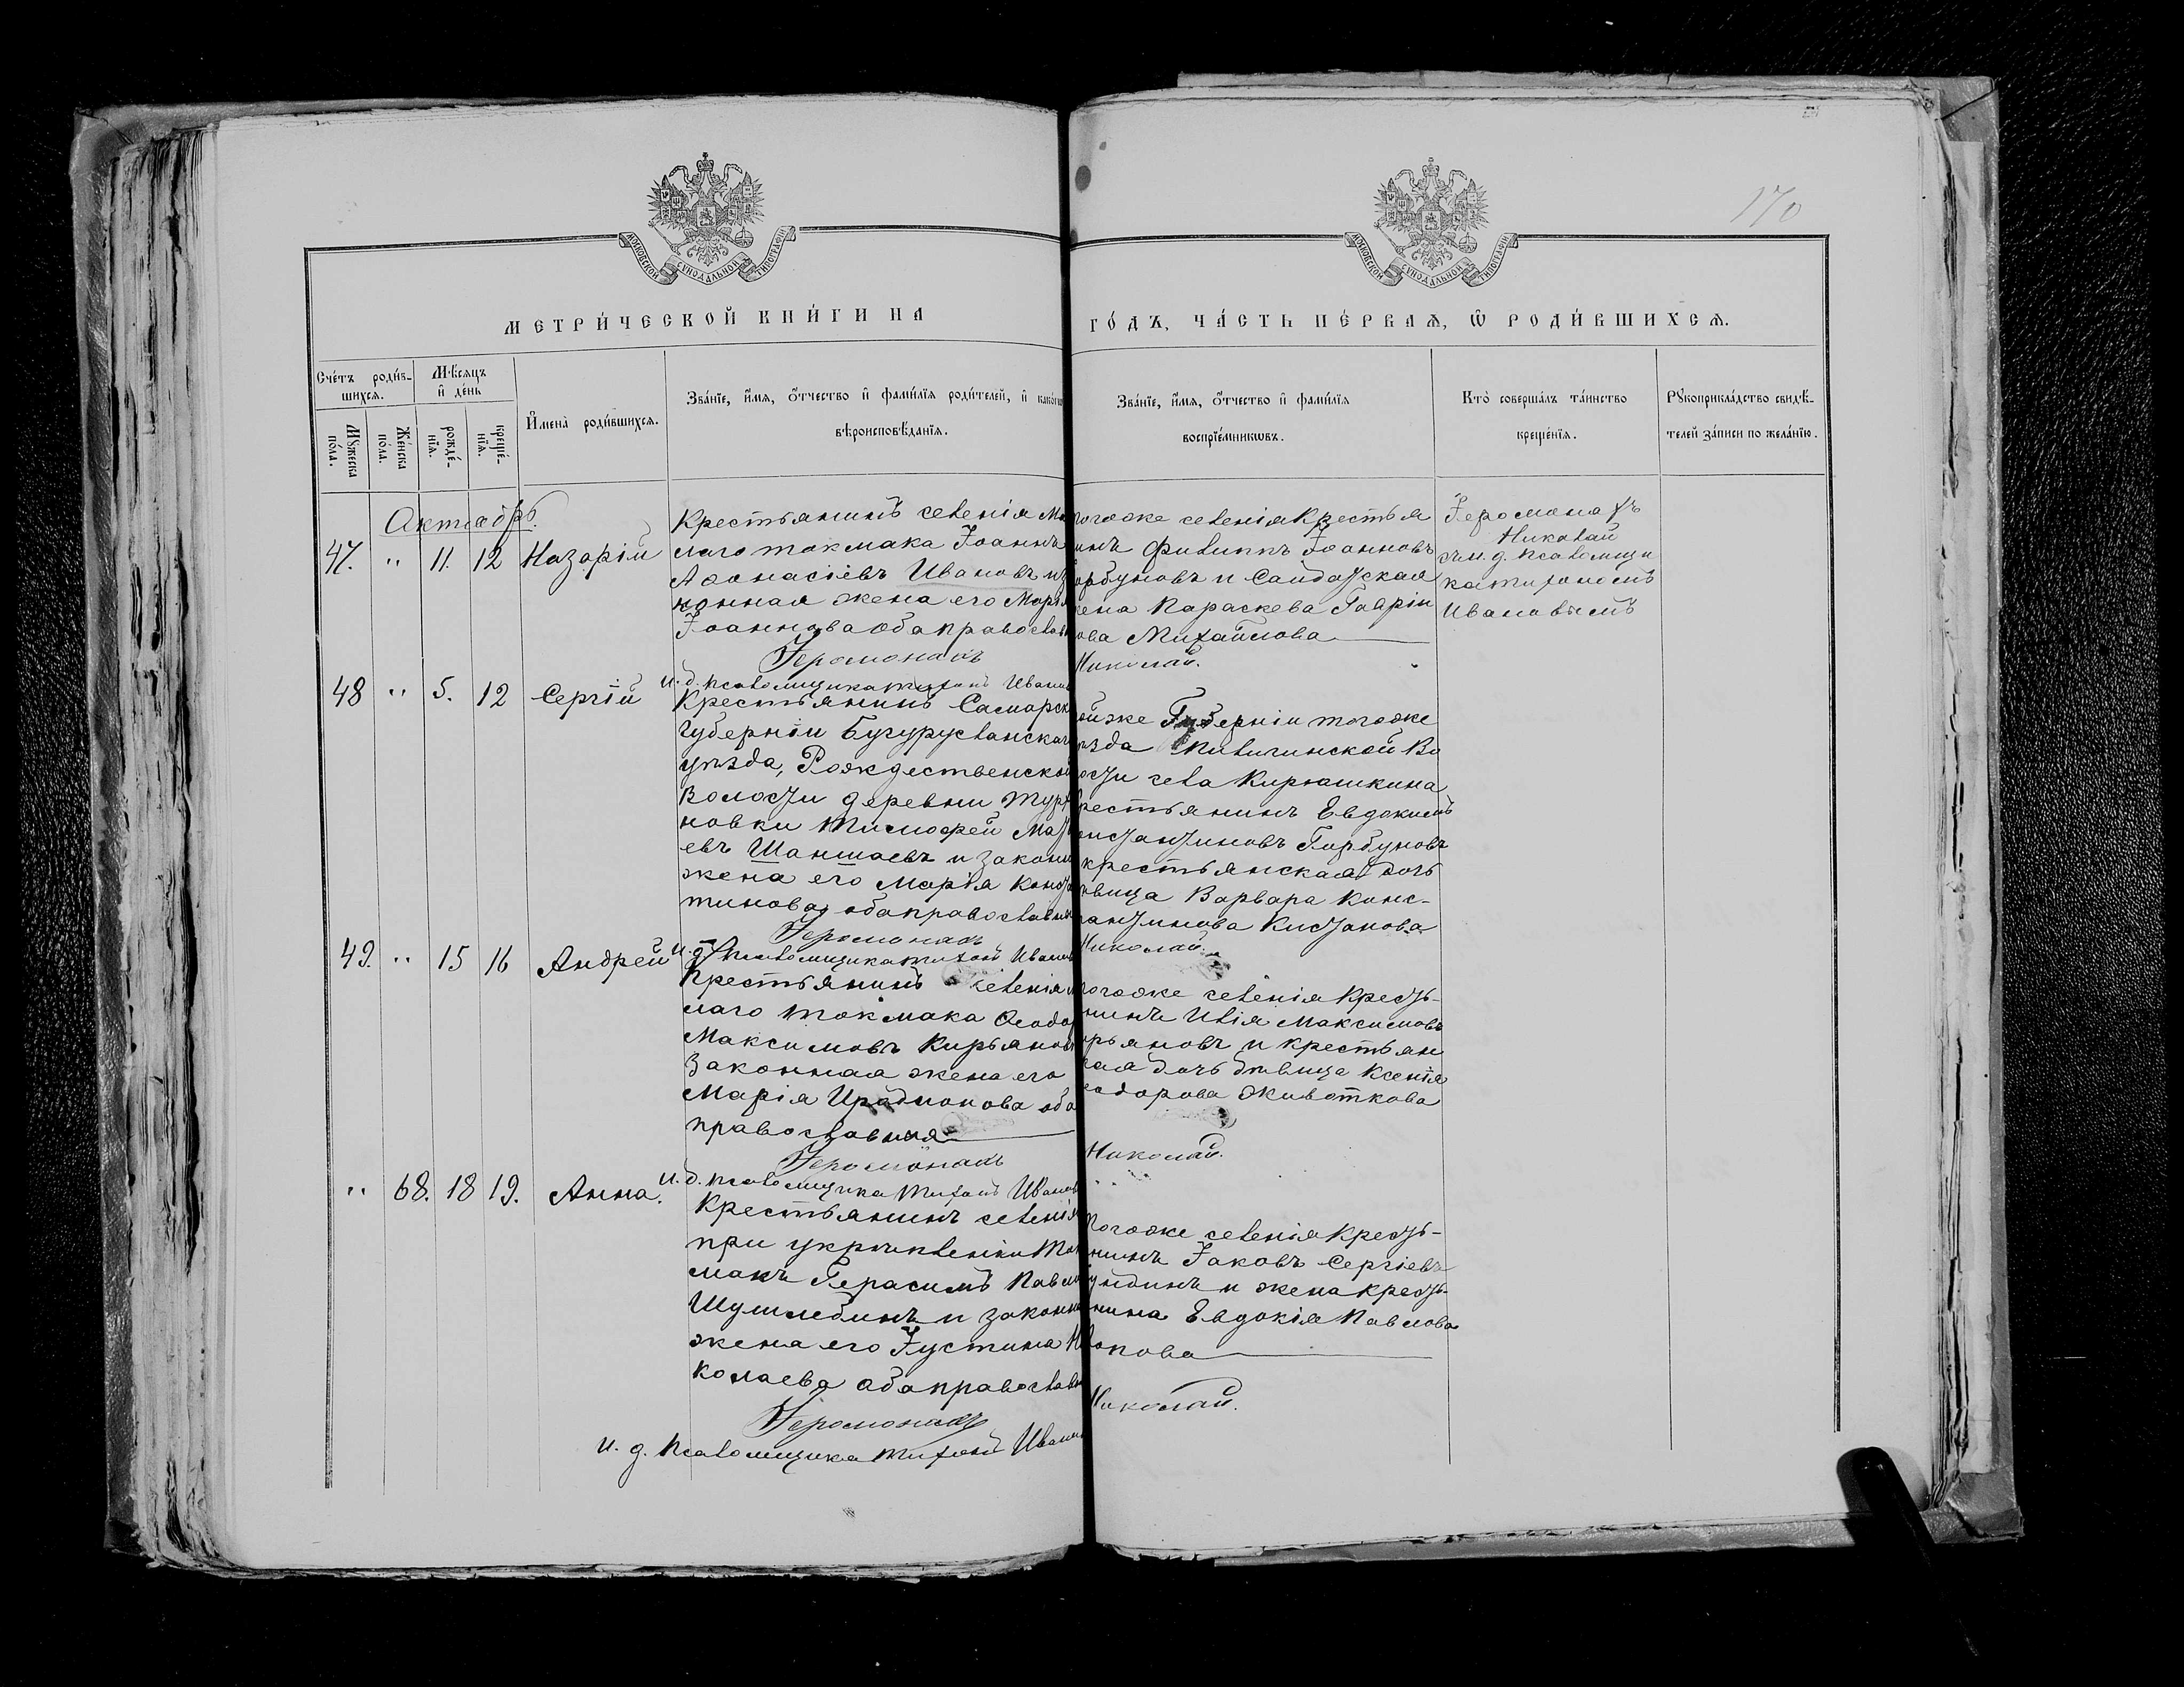 170
МОСКОВСКОЙ СѴНОДАЛЬНОЙ ТИПОГРАФІИ
МОСКОВСКОЙ СѴНОДАЛЬНОЙ ТИПОГРАФІИ
МЕТРИ́ЧЕСКОЙ КНИ́ГИ НА
ГО́ДЪ, ЧА́СТЬ ПЕ́РВАѦ, Ѡ҆ РОДИ́ВШИХСѦ.
Сче́тъ роди́в-
шихсѧ.
Мѣ́сѧцъ
и҆ де́нь
Мꙋ́жеска
по́ла.
Же́нска
по́ла.
рожде́-
нїѧ.
креще́-
нїѧ.
И҆мена̀ роди́вшихсѧ.
Зва́нїе, и҆́мѧ, ѻ҆́тчество и҆ фами́лїѧ роди́телей, и҆
вѣроисповѣ́данїѧ.
Зва́нїе, и҆́мѧ, ѻ҆́тчество и҆ фами́лїѧ
воспрїе́мникѡвъ.
Кто̀ соверша́лъ та́инство
креще́нїѧ.
Рꙋкоприкла́дство свидѣ́-
телей за́писи по жела́нїю.
Актябрь.
47. " 11. 12 Назарій
Крестьянинъ селенія Ма
лаго токмака Іоаннъ
Аѳонасіевъ Ивановъ и
конная жена его Марія
Іоаннова оба православн
Іеромонахъ
и. д. псаломщика тихонъ Иванов
тогоже селенія Крестья
инъ Филиппъ Іоанновъ
орбуновъ и Салдатская
ена Параскева Гавріи
ова Михайлова
Николай.
Іеромонахъ
Николай
съ и. д. псаломщи
ка тихономъ
Ивановымъ
48 " 5. 12 Сергій
Крестьянинъ Самарск
Губерніи Бугурусланскаг
уѣзда, Рождественской
Волости деревни
новки Тимофей
евъ Шантаевъ и законн
жена его Марія Конста
тинова, оба православн
Іеромонахъ
и. д. псаломщика тихонъ Иванов
ойже Губерніи тогоже
ѣзда Пиличинской Во
ости села Кирюшкина
рестьянинъ Евдокимъ
онстантиновъ Горбуновъ
крестьянская дочь
вица Варвара Конс-
тантинова Кистанова
Николай.
49. " 15 16 Андрей
Крестьянинъ селенія
лаго токмака Ѳеодо
Максимовъ Кирьяновъ
Законная жена его
Марія Ирадионова оба
православныя
Іеромонахъ
и. д. псаломщика Тихонъ Иванов
тогоже селенія Кресть-
нинъ Илія Максимовъ
рьяновъ и крестьян
кая дочь дѣвица Ксенія
еодорова Животкова
Николай.
" 68. 18 19. Анна.
Крестьянинъ селенія
при укрѣпленіи Ток
макъ Герасимъ Павло
и законн
жена его Іустина Ни
колаева оба православн
Іеромонахъ
и. д. Псаломщика Тихонъ Иванов
Тогоже селенія Кресть-
нинъ Іаковъ Сергіевъ
ундинъ и жена Кресть-
нина Евдокія Павлова
опова
Николай.